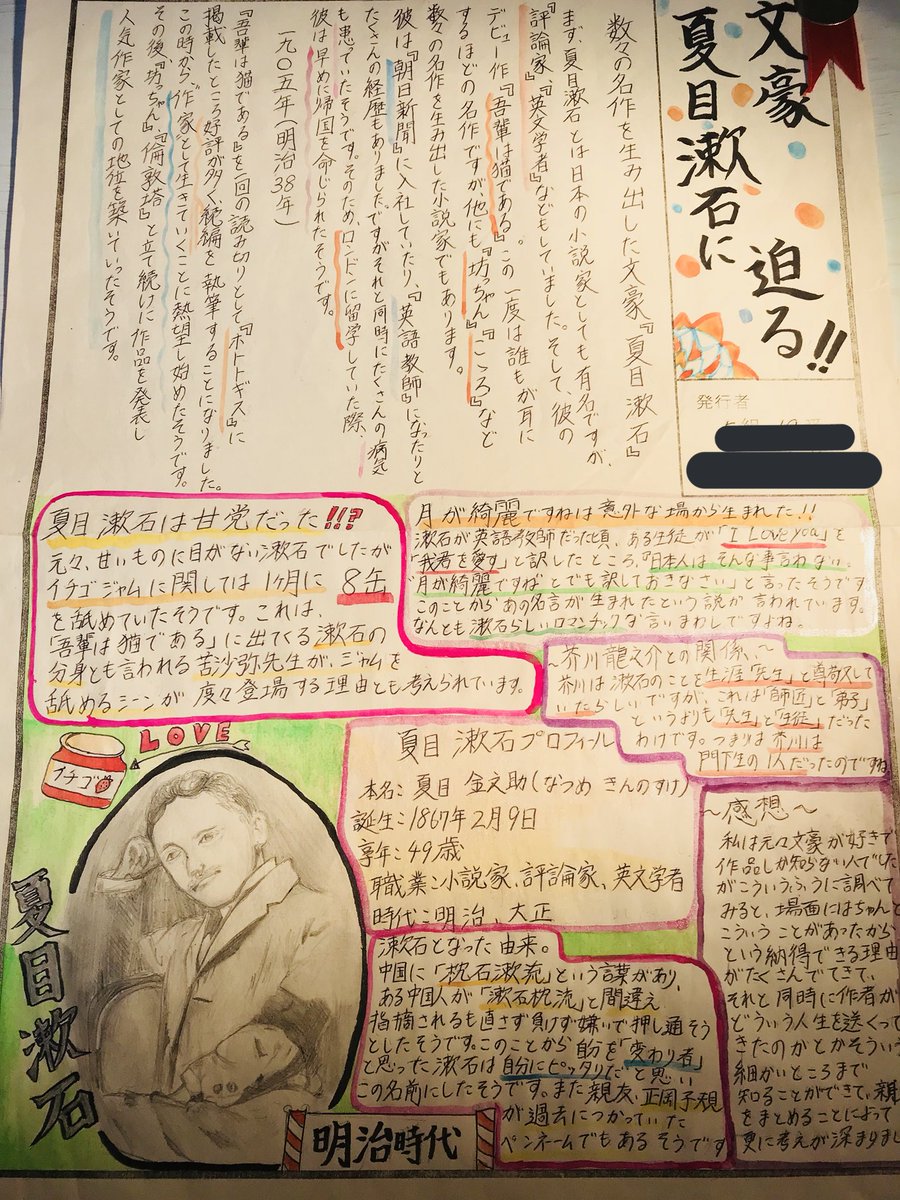 文豪
夏目漱石に
迫る!!
発行者
数々の名作を生み出した文豪『夏目漱石』
まず、夏目漱石とは日本の小説家としても有名ですが、
『評論家』、『英文学者』などもしていました。そして、彼の
デビュー作『吾輩は猫である』。この一度は誰もが耳に
するほどの名作ですが他にも『坊っちゃん』『こころ』など
数々の名作を生み出した小説家でもあります。
彼は『朝日新聞』に入社していたり、『英語教師』になったりと
たくさんの経歴もありました。ですがそれと同時にたくさんの病気
も患っていたそうです。そのため、ロンドンに留学していた際、
彼は早めに帰国を命じられたそうです。
一九〇五年(明治38年)
『吾輩は猫である』を一回の読み切りとして『ホトトギス』に
掲載したところ好評が多く続編を執筆することになりました。
この時から、作家として生きていくことに熱望し始めたそうです。
その後『坊っちゃん』、『倫敦塔』と立て続けに作品を発表し
人気作家としての地位を築いていったそうです。
月が綺麗ですねは意外な場から生まれた!!
漱石が英語教師だった頃、ある生徒が「I Love you」を
「我君を愛す」と訳したところ、「日本人はそんな事言わない。
月が綺麗ですねとでも訳しておきなさい」と言ったそうです
このことからあの名言が生まれたという説が言われています。
なんとも漱石らしいロマンチックな言いまわしですよね。
夏目漱石は甘党だった!!?
元々、甘いものに目がない漱石でしたが
イチゴジャムに関しては1ヶ月に8缶
を舐めていたそうです。これは、
「吾輩は猫である」に出てくる漱石の
分身とも言われる苦沙弥先生が、ジャムを
舐めるシーンが度々登場する理由とも考えられています。
~芥川龍之介との関係、~
芥川は漱石のことを生涯「先生」と尊敬して
いたらしいですが、これは「師匠」と「弟子」
というよりも「先生」と「生徒」だった
わけです。つまりは芥川は
門下生の1人だったのですね
LOVE
イチゴ
夏目漱石
夏目漱石プロフィール
本名:夏目 金之助(なつめ きんのすけ)
誕生:1867年2月9日
享年:49歳
職業:小説家、評論家、英文学者
時代:明治、大正
漱石となった由来。
中国に「枕石漱流」という言葉があり、
ある中国人が「漱石枕流」と間違え
指摘されるも直さず負けず嫌いで押し通そう
としたそうです。このことから自分を「変わり者」
と思った漱石は自分にピッタリだと思い
この名前にしたそうです。また親友、正岡子規
が過去につかっていた
ペンネームでもあるそうです
明治時代
~感想~
私は元々文豪が好きで
作品しか知らない人でした
がこういうふうに調べて
みると、場面にはちゃんと
こういうことがあったから
という納得できる理由
がたくさんでてきて、
それと同時に作者が
どういう人生を送くって
きたのかとかそういう
細かいところまで
知ることができて、親
をまとめることによって
更に考えが深まりまし